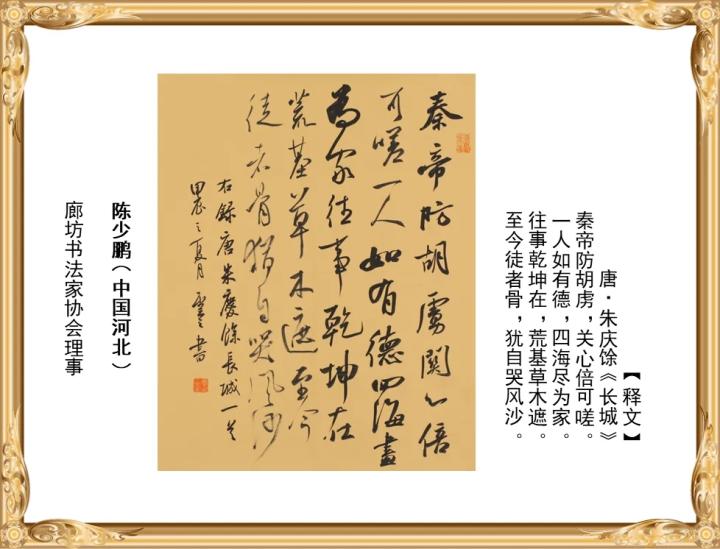 【释文】
唐·朱庆馀《长城》
秦帝防胡虏，关心倍可嗟。
一人如有德，四海尽为家。
往事乾坤在，荒基草木遮。
至今徒者骨，犹自哭风沙。
秦帝防胡虜關心倍
可嗟一人如有德四海盡
為家往事乾坤在
荒基草木遮至今
徒者骨猶自哭風沙
右錄唐朱慶餘長城一首
甲辰之夏月
書
陈少鹏（中国河北）
廊坊书法家协会理事